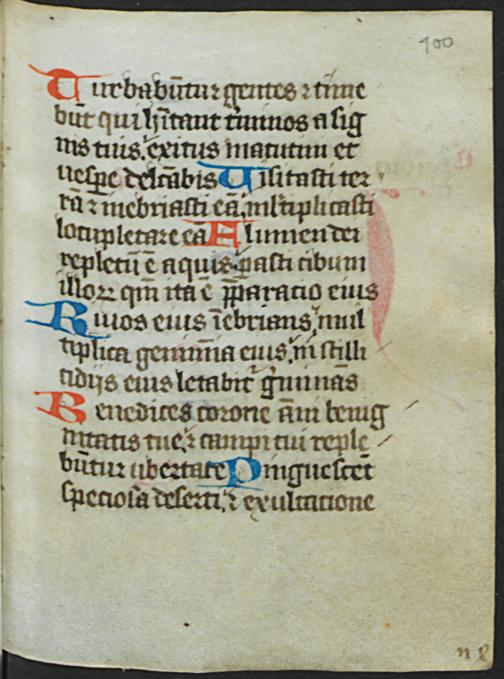 100
Turbabūtur gentes ⁊ time
būt qui hītant t̄minos a sig
nis tuis. exitus matutini et
uesp̄e delc̄abis Uisitasti ter
rā ⁊ inebriasti eā, m̄ltiplicasti
locupletare eā Flumen dei
repletū ē aquis. p̄asti cibum
illoꝝ qm̄ ita ē p̄paracio eius
Riuos eius īebrians, mul
tiplica genim̄ia eius, in stilli
cidijs eius letabit̄ ḡminās
Benedices corone āni benig
nitatis tue, ⁊ campi tui reple
būtur ubertate Pinguescēt
speciosa deserti, ⁊ exultacione